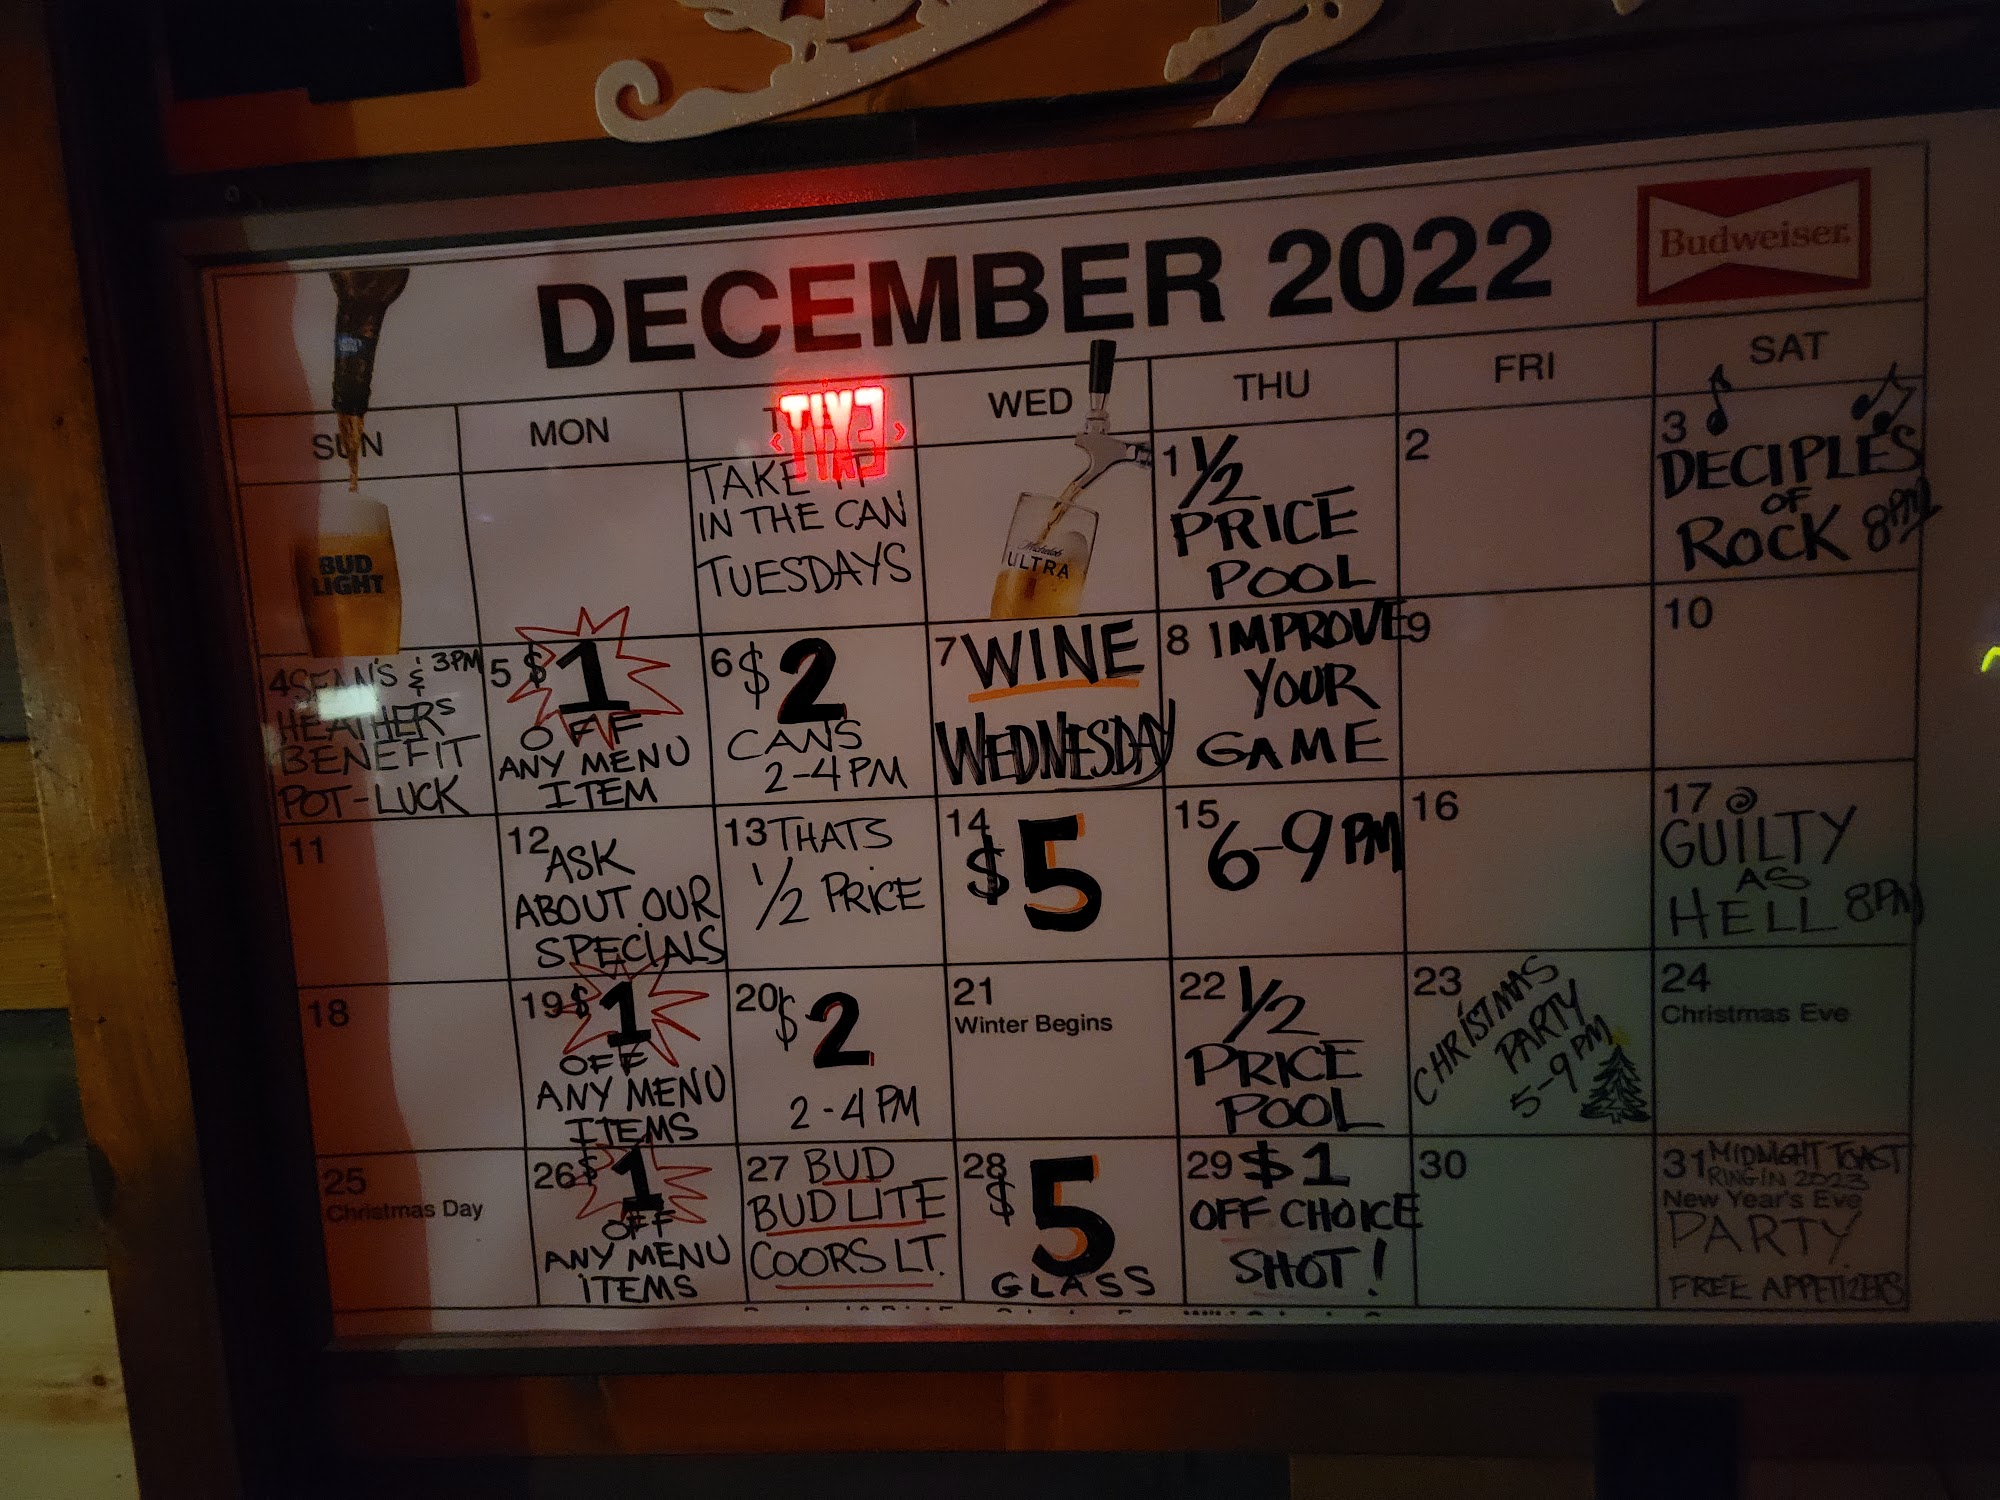 DECEMBER 2022
Budweiser
SUN
MON
WED
THU
FRI
SAT
EXIT
BUD
LIGHT
TAKE IT
IN THE CAN
TUESDAYS
Michelob
ULTRA
1 1/2
PRICE
POOL
2
3
DECIPLES
OF
ROCK 8PM
4 SEAN'S & 3PM
HEATHERS
BENEFIT
POT-LUCK
5 $1
OFF
ANY MENU
ITEM
6 $2
CANS
2-4 PM
7 WINE
WEDNESDAY
8 IMPROVE
YOUR
GAME
9
10
11
12 ASK
ABOUT OUR
SPECIALS
13 THATS
1/2 PRICE
14
$5
15
6-9 PM
16
17
GUILTY
AS
HELL 8PM
18
19 $1
OFF
ANY MENU
ITEMS
20 $2
2-4 PM
21
Winter Begins
22 1/2
PRICE
POOL
23
CHRISTMAS
PARTY
5-9 PM
24
Christmas Eve
25
Christmas Day
26 $1
OFF
ANY MENU
ITEMS
27 BUD
BUD LITE
COORS LT.
28
$5
GLASS
29 $1
OFF CHOICE
SHOT!
30
31 MIDNIGHT TOAST
RING IN 2023
New Year's Eve
PARTY
FREE APPETIZERS